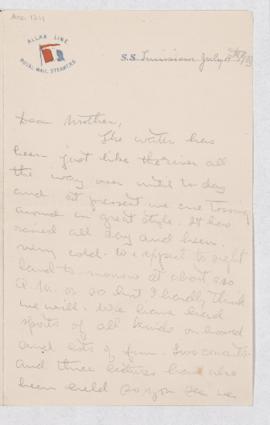 ALLAN LINE
ROYAL MAIL STEAMERS
S.S. Tunisian July
Dear Mother,
The water has
been just like the river all
the way over until to day
and at present we are tossing
around in great style. It has
rained all day and been
very cold. We expect to sight
land to-morrow at about
A.M. or so but I hardly think
we will. We have had
sports of all kinds on board
and lots of fun. Two concerts
and three lectures have also
been held so you see we